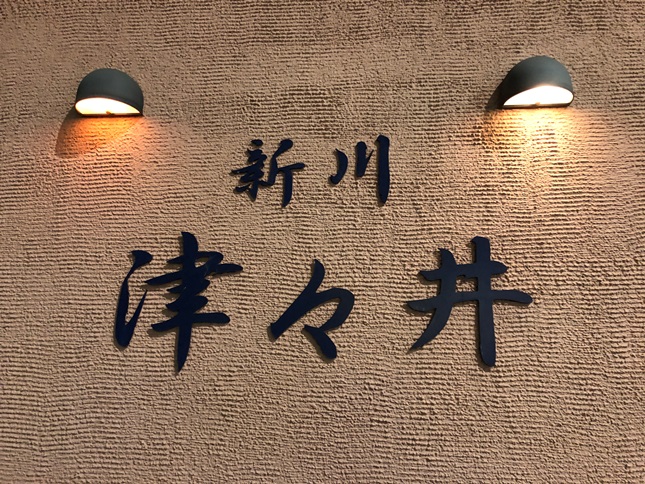 新川
津々井